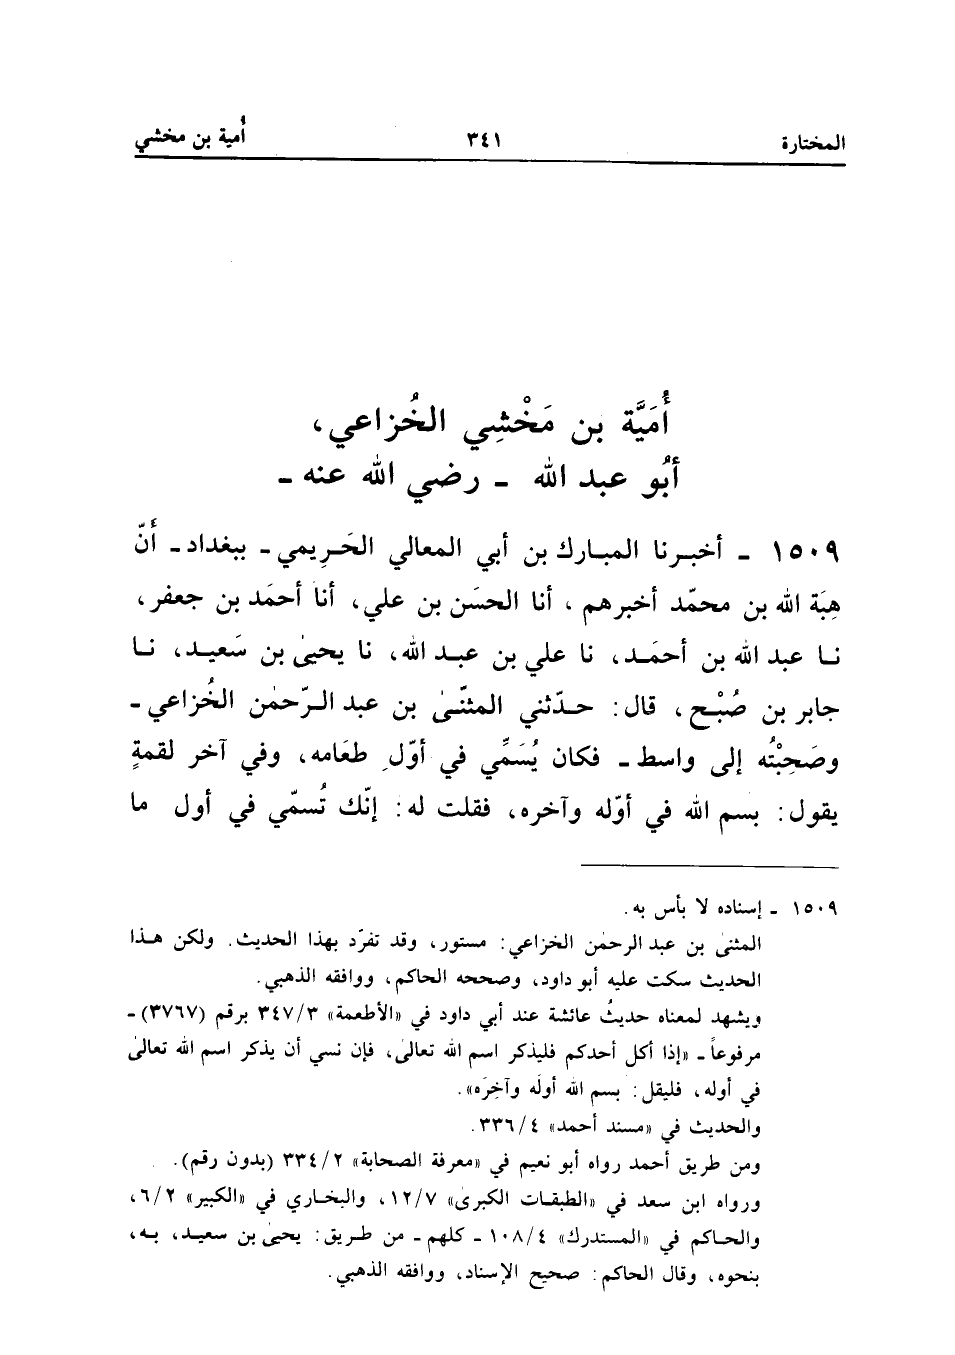 المختارة ٣٤١ أمية بن مخشي
أُمَيَّة بن مَخْشِي الخُزاعي،
أبُو عبد الله - رضي الله عنه -
١٥٠٩ - أخبرنا المبارك بن أبي المعالي الحَرِيمي - ببغداد - أَنّ
هِبَة الله بن محمّد أخبرهم، أنا الحسَن بن علي، أنا أحمَد بن جعفر،
نا عبد الله بن أحمَد، نا علي بن عبد الله، نا يحيىٰ بن سَعيد، نا
جابر بن صُبْح، قال: حدّثني المثنّىٰ بن عبد الرّحمٰن الخُزاعي -
وصَحِبْتُه إلى واسط - فكان يُسَمِّي في أوّلِ طعَامه، وفي آخر لقمةٍ
يقول: بسم الله في أوّله وآخره، فقلت له: إنّك تُسمّي في أول ما
١٥٠٩ - إسناده لا بأس به.
المثنىٰ بن عبد الرحمٰن الخزاعي: مستور، وقد تفرّد بهذا الحديث. ولكن هذا
الحديث سكت عليه أبو داود، وصححه الحاكم، ووافقه الذهبي.
ويشهد لمعناه حديثُ عائشة عند أبي داود في «الأطعمة» ٣٤٧/٣ برقم (٣٧٦٧) -
مرفوعاً - «إذا أكل أحدكم فليذكر اسم الله تعالىٰ، فإن نسي أن يذكر اسم الله تعالىٰ
في أوله، فليقل: بسم الله أولَه وآخِرَه».
والحديث في «مسند أحمد» ٣٣٦/٤.
ومن طريق أحمد رواه أبو نعيم في «معرفة الصحابة» ٣٣٤/٢ (بدون رقم).
ورواه ابن سعد في «الطبقات الكبرىٰ» ١٢/٧، والبخاري في «الكبير» ٦/٢،
والحاكم في «المستدرك» ١٠٨/٤ - كلهم - من طريق: يحيىٰ بن سعيد، به،
بنحوه، وقال الحاكم: صحيح الإسناد، ووافقه الذهبي.